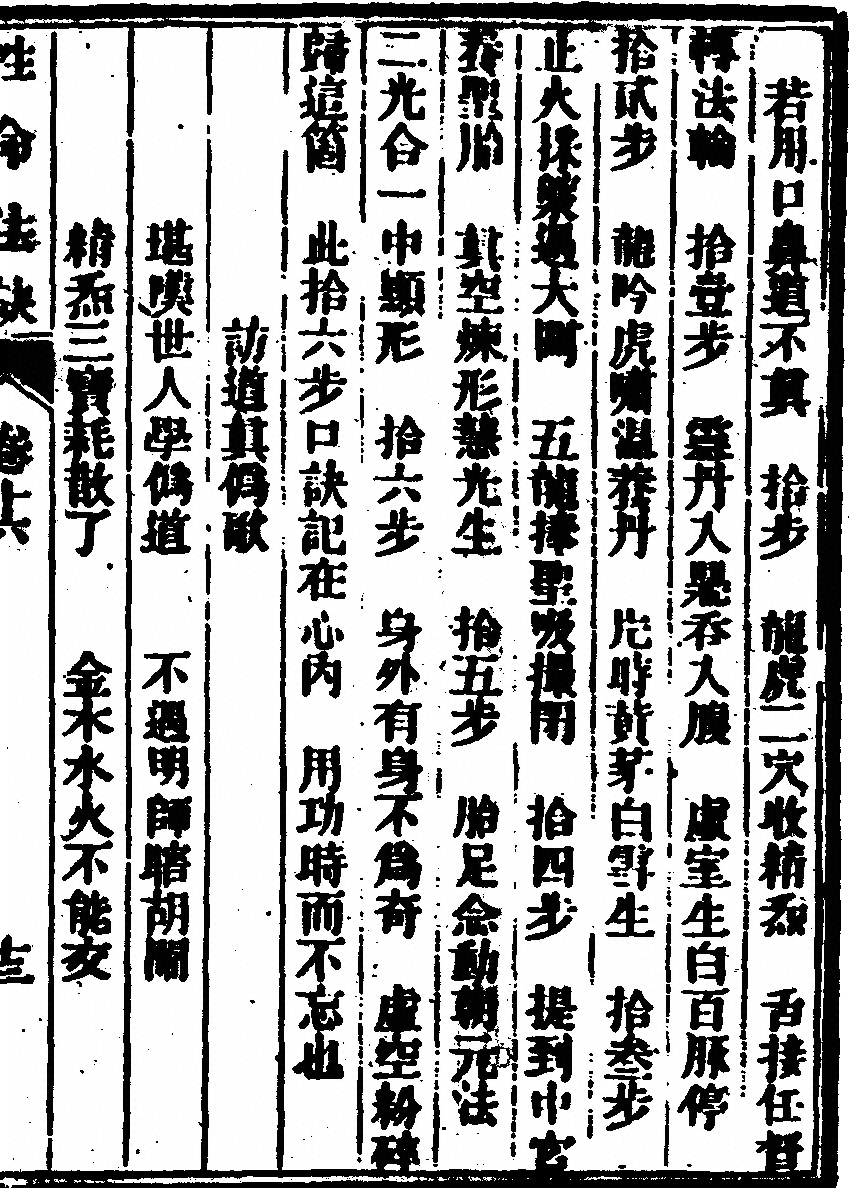 若用口鼻道不真　拾步　龍虎二穴收精炁　舌接任督
轉法輪　拾壹步　霊丹入鼎吞入腹　虛室生白百脈停
拾貳步　龍吟虎嘯溫养丹　片時黃芽白雪生　拾叁步
止火採藥過大關　五龍捧聖吸撮閉　拾四步　提到中宮
养聖胎　真空煉形慧光生　拾五步　胎足念動朝元法
二光合一中顯形　拾六步　身外有身不為奇　虛空粉碎
歸這箇　此拾六步口訣記在心內　用功時而不忘也
訪道真偽歌
堪嘆世人學偽道　不遇明師瞎胡鬧
精炁三寶耗散了　金木水火不能交
性命法訣　卷十六　十三